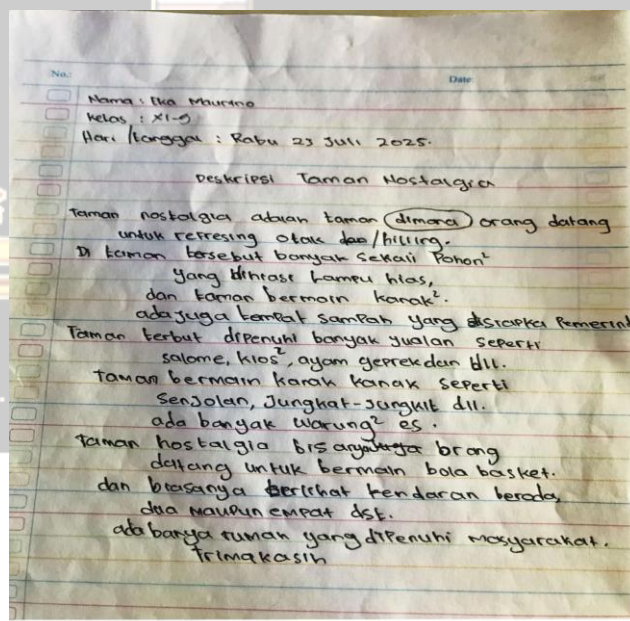 No.:
Date
Nama : Ika Maurino
Kelas : XI-9
Hari /tanggal : Rabu 23 Juli 2025.
Deskripsi Taman Nostalgia
Taman nostalgia adalah taman dimana orang datang
untuk refresing otak /hilling.
Di taman tersebut banyak sekali Pohon²
yang dihiasi lampu hias,
dan taman bermain kanak².
ada juga tempat sampah yang disiapka Pemerint
Taman terbut dipenuhi banyak yualan seperti
salome, kios², ayam geprek dan dll.
Taman bermain kanak kanak seperti
Senjolan, Jungkat-jungkit dll.
ada banyak warung² es.
Taman nostalgia bisanya orang
datang untuk bermain bola basket.
dan biasanya berlihat kendaran beroda,
dua maupun empat dst.
ada banya ruman yang dipenuhi masyarakat.
Trimakasih